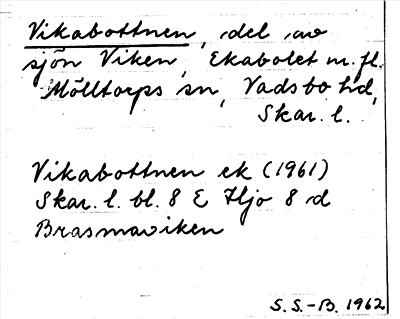 Vikabottnen, del av
sjön Viken, Ekabolet m. fl.
Mölltorps sn, Vadsbo hd,
Skar. l.
Vikabottnen ek (1961)
Skar. l. bl. 8 E Hjo 8 d
Brasmaviken
S. S.-B. 1962